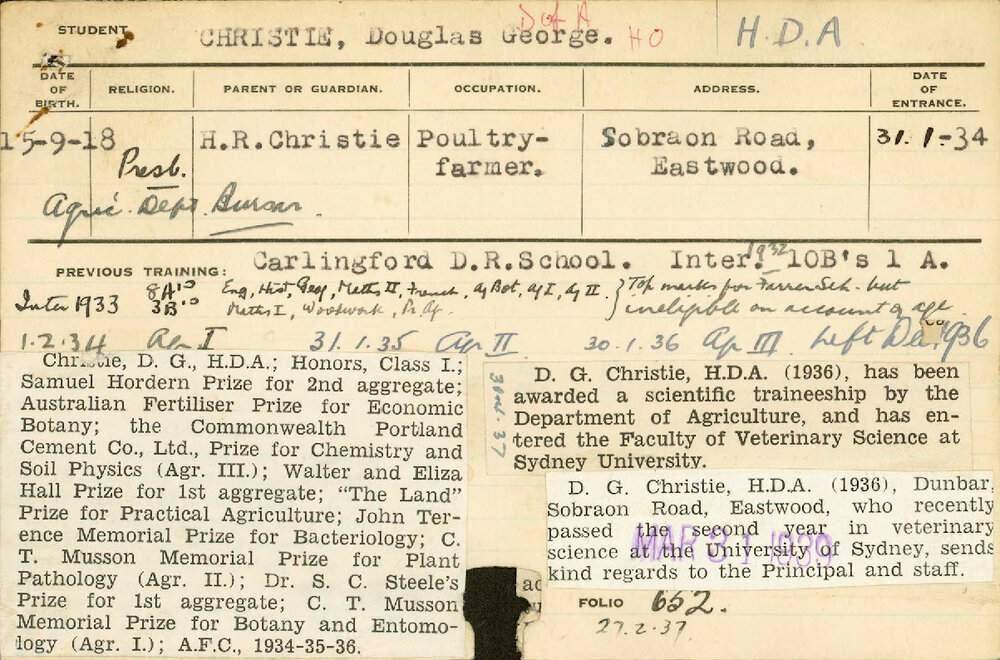 D of A
STUDENT CHRISTIE, Douglas George. HO H.D.A
DATE OF BIRTH. RELIGION. PARENT OR GUARDIAN. OCCUPATION. ADDRESS. DATE OF ENTRANCE.
15-9-18 H.R.Christie Poultry- Sobraon Road, 31.1-34
Presb. farmer. Eastwood.
Agric. Dept. Bursar.
PREVIOUS TRAINING: Carlingford D.R.School. Inter. 1932 10B's 1 A.
Inter 1933 8A's 3B's
Eng, Hist, Geog, Maths II, French, Ag Bot, Ag I, Ag II
Maths I, Woodwork,
} Top marks for Farrer Sch. but
ineligible on account of age
1.2.34 Agr I 31.1.35 Agr II 30.1.36 Agr III Left Dec. 1936
Christie, D. G., H.D.A.; Honors, Class I.;
Samuel Hordern Prize for 2nd aggregate;
Australian Fertiliser Prize for Economic
Botany; the Commonwealth Portland
Cement Co., Ltd., Prize for Chemistry and
Soil Physics (Agr. III.); Walter and Eliza
Hall Prize for 1st aggregate; "The Land"
Prize for Practical Agriculture; John Ter-
ence Memorial Prize for Bacteriology; C.
T. Musson Memorial Prize for Plant
Pathology (Agr. II.); Dr. S. C. Steele's
Prize for 1st aggregate; C. T. Musson
Memorial Prize for Botany and Entomo-
logy (Agr. I.); A.F.C., 1934-35-36.
D. G. Christie, H.D.A. (1936), has been
awarded a scientific traineeship by the
Department of Agriculture, and has en-
tered the Faculty of Veterinary Science at
Sydney University.
D. G. Christie, H.D.A. (1936), Dunbar,
Sobraon Road, Eastwood, who recently
passed the second year in veterinary
science at the University of Sydney, sends
kind regards to the Principal and staff.
MAR 31 1939
FOLIO 652.
27.2.37